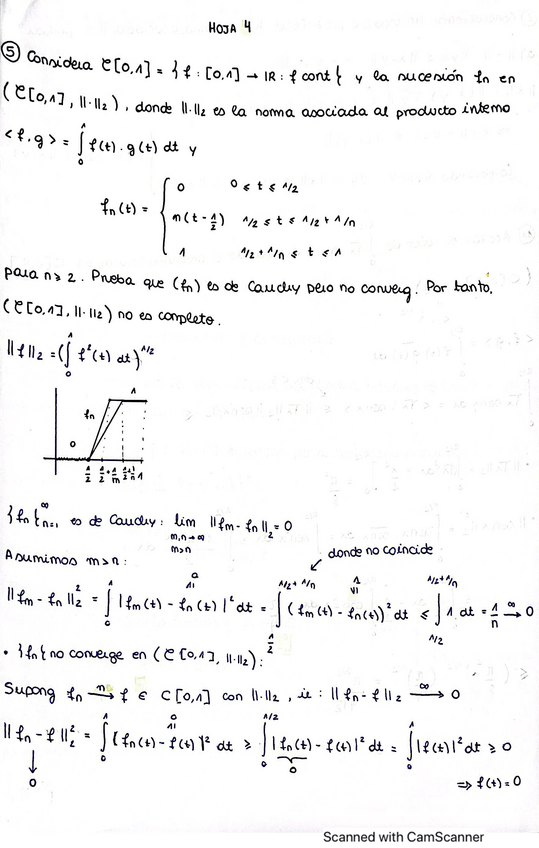 HOJA 4
⑤ Considera C[0,1] = {f : [0,1] → IR : f cont} y la sucesión fn en
(C[0,1], ||·||₂), donde ||·||₂ es la norma asociada al producto interno
<f,g> = ∫₀¹ f(t)·g(t) dt y
fn(t) = { 0   0 ≤ t ≤ 1/2
n(t - 1/2)   1/2 ≤ t ≤ 1/2 + 1/n
1   1/2 + 1/n ≤ t ≤ 1
para n ≥ 2. Prueba que (fn) es de Cauchy pero no converg. Por tanto,
(C[0,1], ||·||₂) no es completo.
||f||₂ = (∫₀¹ f²(t) dt)^1/2
1
fn
0
1/2 1/2+1/m 1/2+1/n 1
{fn}ₙ₌₁^∞ es de Cauchy: lim m,n→∞ m>n ||fm - fn||₂ = 0
donde no coincide
Asumimos m>n:
||fm - fn||₂² = ∫₀¹ |fm(t) - fn(t)|² dt = ∫_{1/2}^{1/2+1/n} (fm(t) - fn(t))² dt ≤ ∫_{1/2}^{1/2+1/n} 1 dt = 1/n →^∞ 0
• {fn} no converge en (C[0,1], ||·||₂):
Supong fn →ⁿ f ∈ C[0,1] con ||·||₂, ie: ||fn - f||₂ →^∞ 0
||fn - f||₂² = ∫₀¹ [fn(t) - f(t)]² dt ≥ ∫₀^{1/2} |fn(t) - f(t)|² dt = ∫₀¹ |f(t)|² dt ≥ 0
↓ 0
0
⇒ f(t) = 0
Scanned with CamScanner